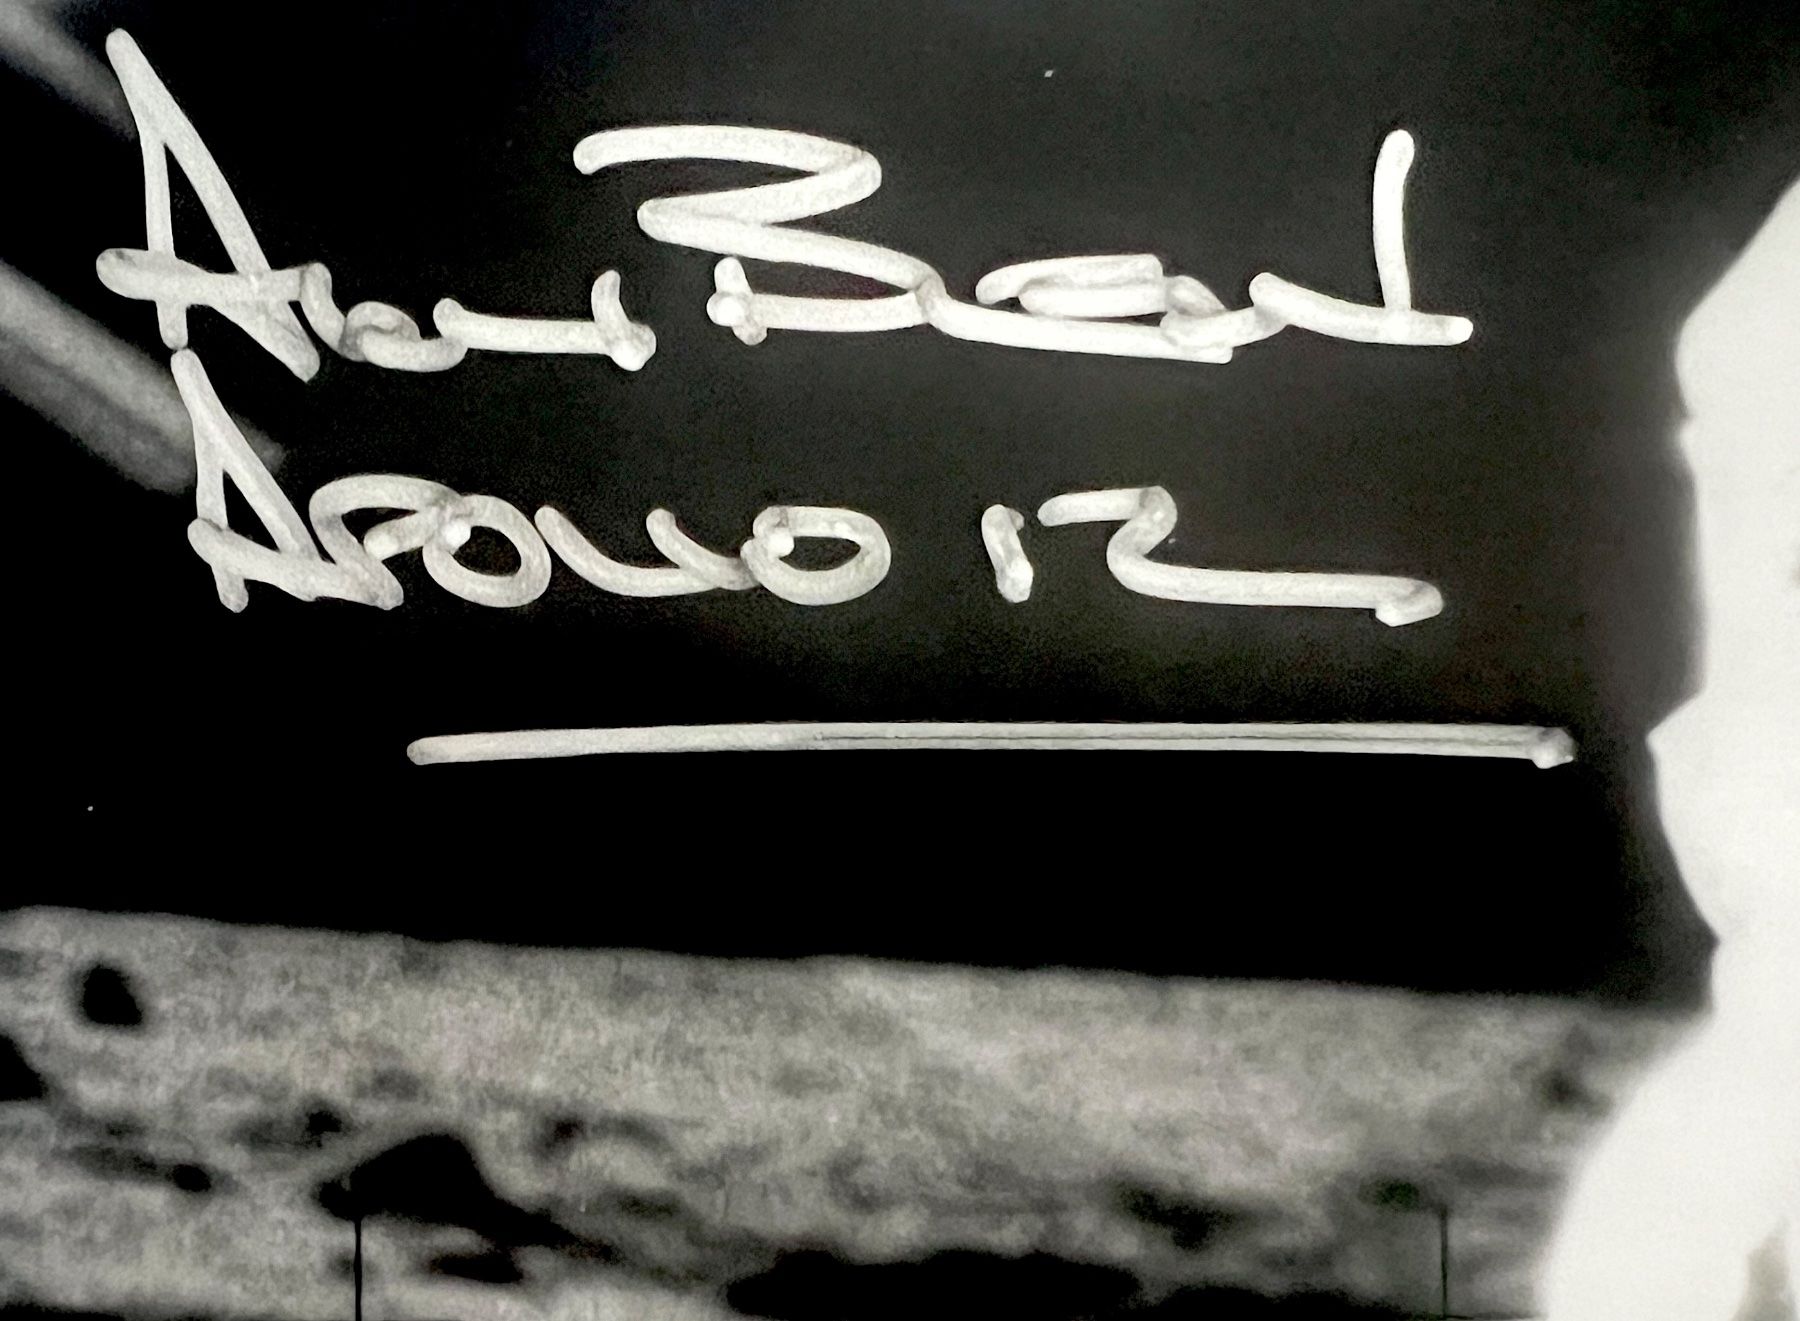 Alan Bean
APOLLO 12